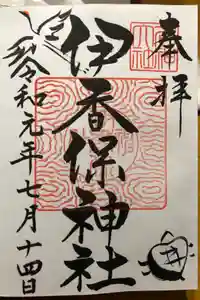 奉拝
伊香保神社
令和元年七月十四日